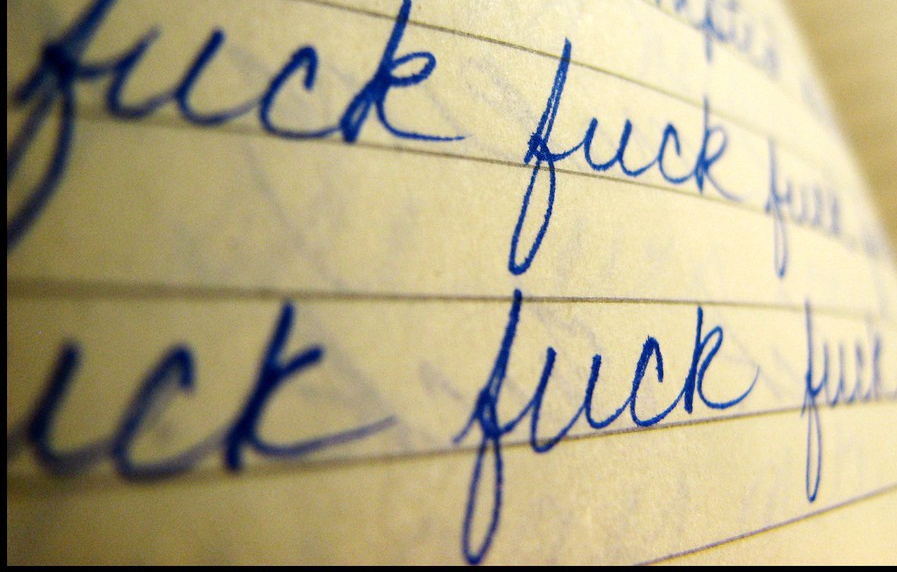 fuck fuck fuck
ick fuck fuck